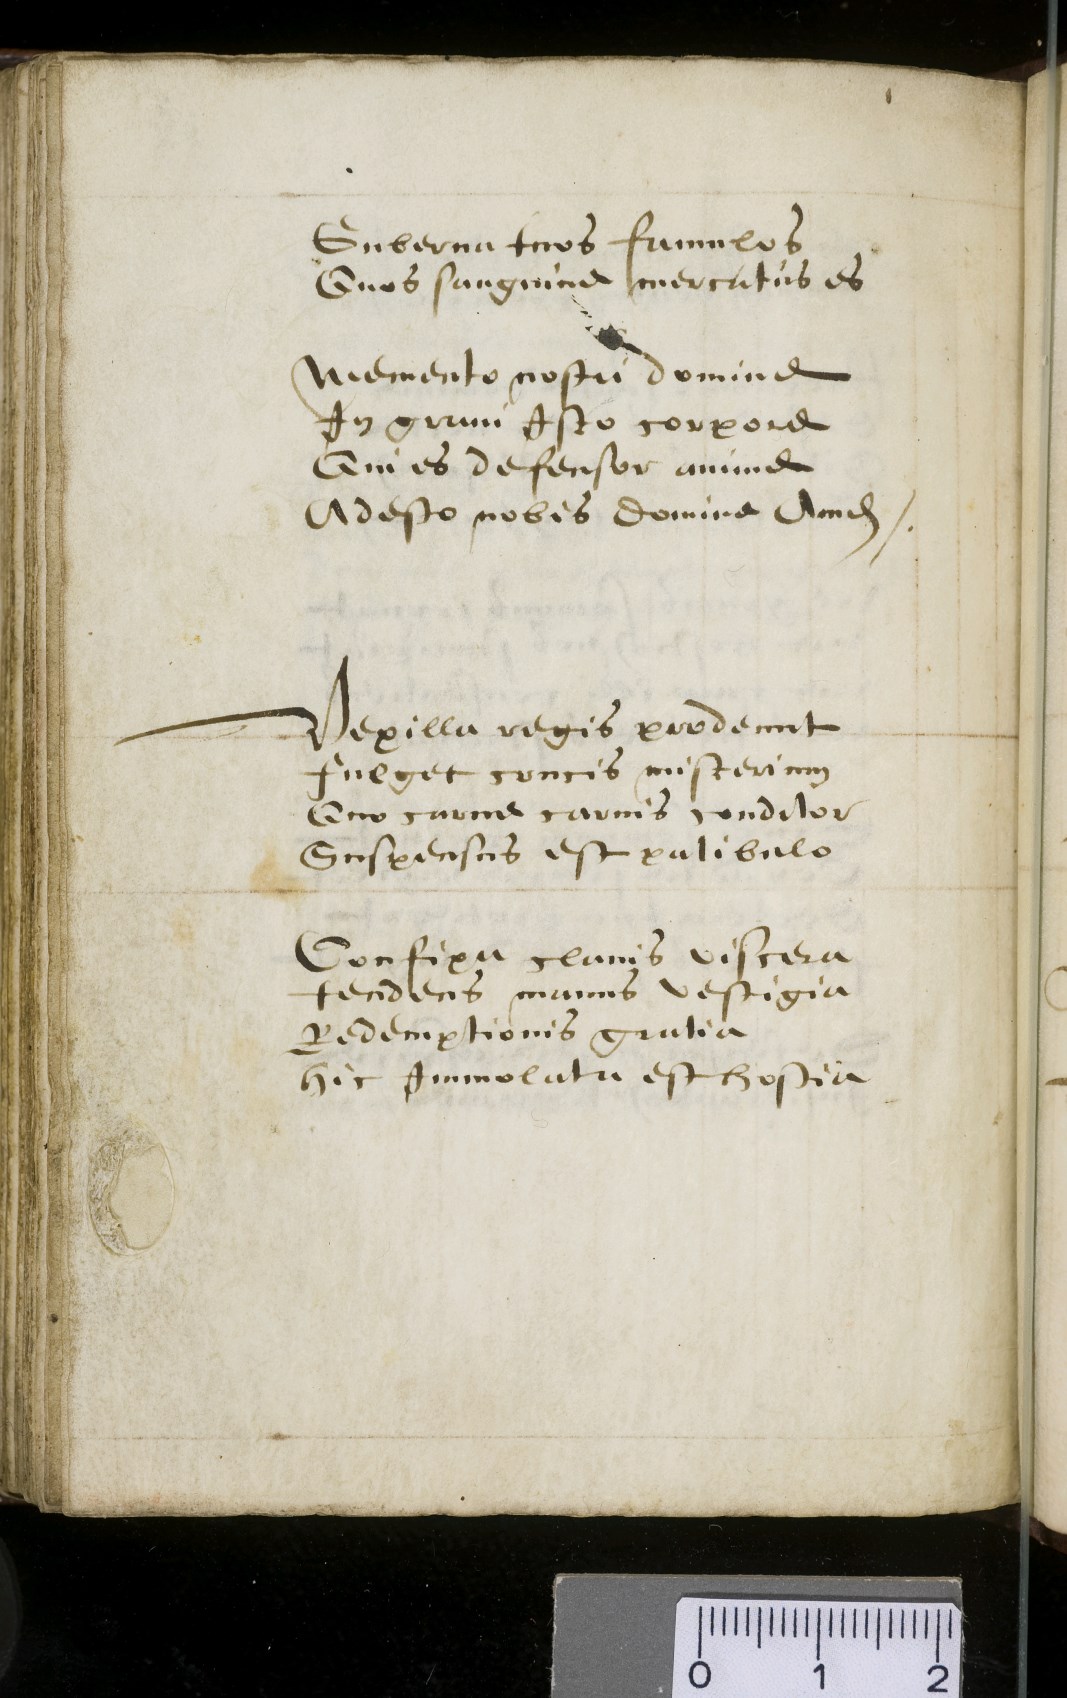 Guberna tuos famulos
Quos sanguine mercatus es
Memento nostri domine
In graui Isto corpore
Qui es defensor anime
Adesto nobis Domine Amen /.
Vexilla regis prodeunt
fulget crucis misterium
Quo carne carnis conditor
Suspensus est patibulo
Confixa clauis viscera
tendens manus vestigia
Redemptionis gratia
hic Immolata est hostia
0 1 2